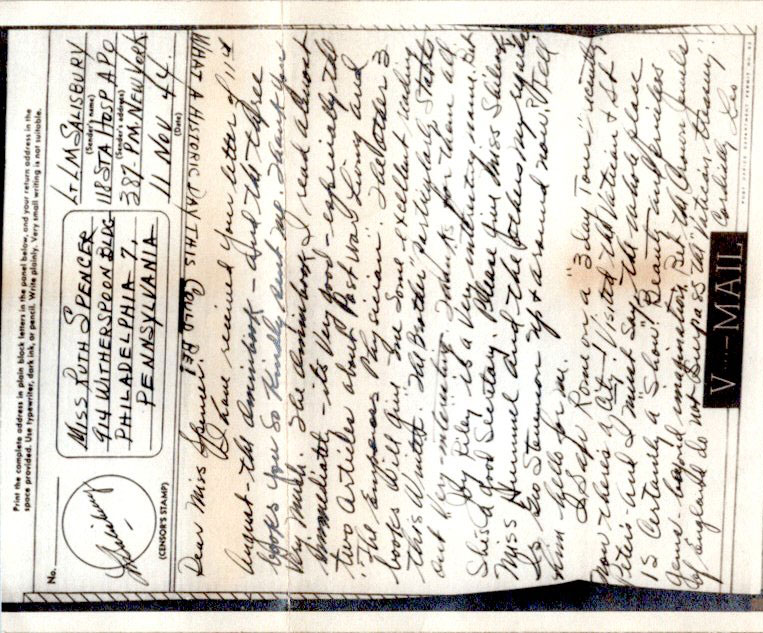 Print the complete address in plain block letters in the panel below, and your return address in the
space provided. Use typewriter, dark ink, or pencil. Write plainly. Very small writing is not suitable.
No.
(CENSOR'S STAMP)
MISS RUTH SPENCER
914 WITHERSPOON BLDG
PHILADELPHIA 7,
PENNSYLVANIA
LT L M SALISBURY
(Sender's name)
118 STA HOSP APO
(Sender's address)
387- PM. NEW YORK
11 NOV 44
(Date)
WHAT A HISTORIC DAY THIS COULD BE!
Dear Miss Spencer:
I have received your letter of 11th
August - the Aminibook - and the three
books you so kindly sent me. Thank you
very much. The Aminibook I read almost
immediately - its very good - especially the
two articles about Post War Living and
"The Express Physician". The other 3
books will give me some excellent reading
this Winter. "Das Brother" particularly States
out very interesting. Thanks for them all.
Joy Riley is a very but
She's a good Secretary. Please give Miss
Miss Hummel and the others my regards
Is Geo Stemmon up & around now. Tell
him hello for me.
I Saw Rome on a "3 day Tour" recently
Now there's a City! Visited the Vatican & St
Peter's - and I must say the whole place
is Certainly a "Show". Beauty and priceless
gems beyond imagination. Bet the Crown Jewels
of England do not surpass the Vatican treasury.
Cordially, Les
V···—MAIL
POST OFFICE DEPARTMENT PERMIT NO.